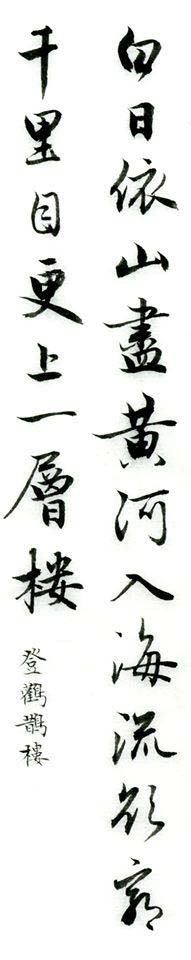 白日依山盡黃河入海流欲窮
千里目更上一層樓
登鸛鵲樓